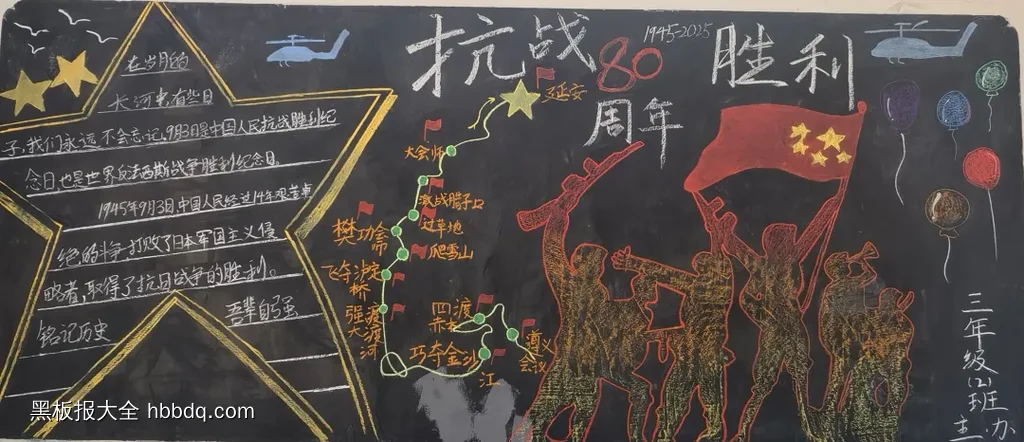 抗战80周年胜利
1945-2025
在岁月的
长河中有些日
子,我们永远不会忘记,9月3日是中国人民抗战胜利纪
念日,也是世界反法西斯战争胜利纪念日。
1945年9月3日,中国人民经过14年艰苦卓
绝的斗争,打败了日本军国主义侵
略者,取得了抗日战争的胜利。
铭记历史 吾辈自强
延安
大会师
激战腊子口
过草地
懋功会师
爬雪山
飞夺泸定桥
强渡大渡河
四渡赤水
巧夺金沙江
遵义会议
三年级(2)班
主办
黑板报大全 hbbdq.com